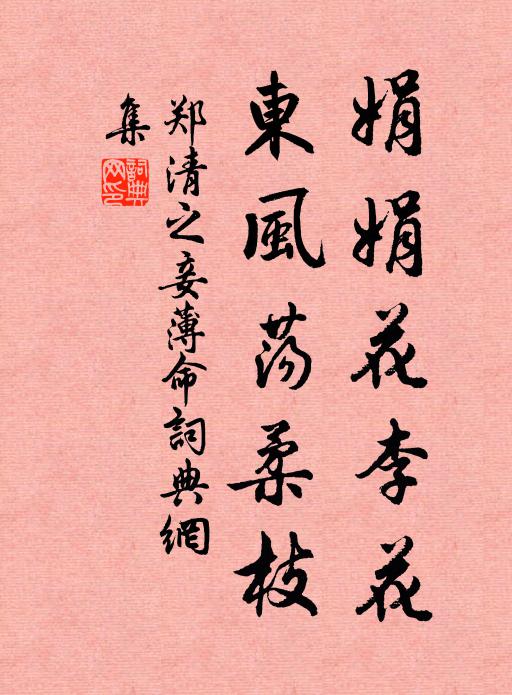 娟娟花李花
東風蕩柔枝
郑清之妾薄命詞典網
集
詞典網印